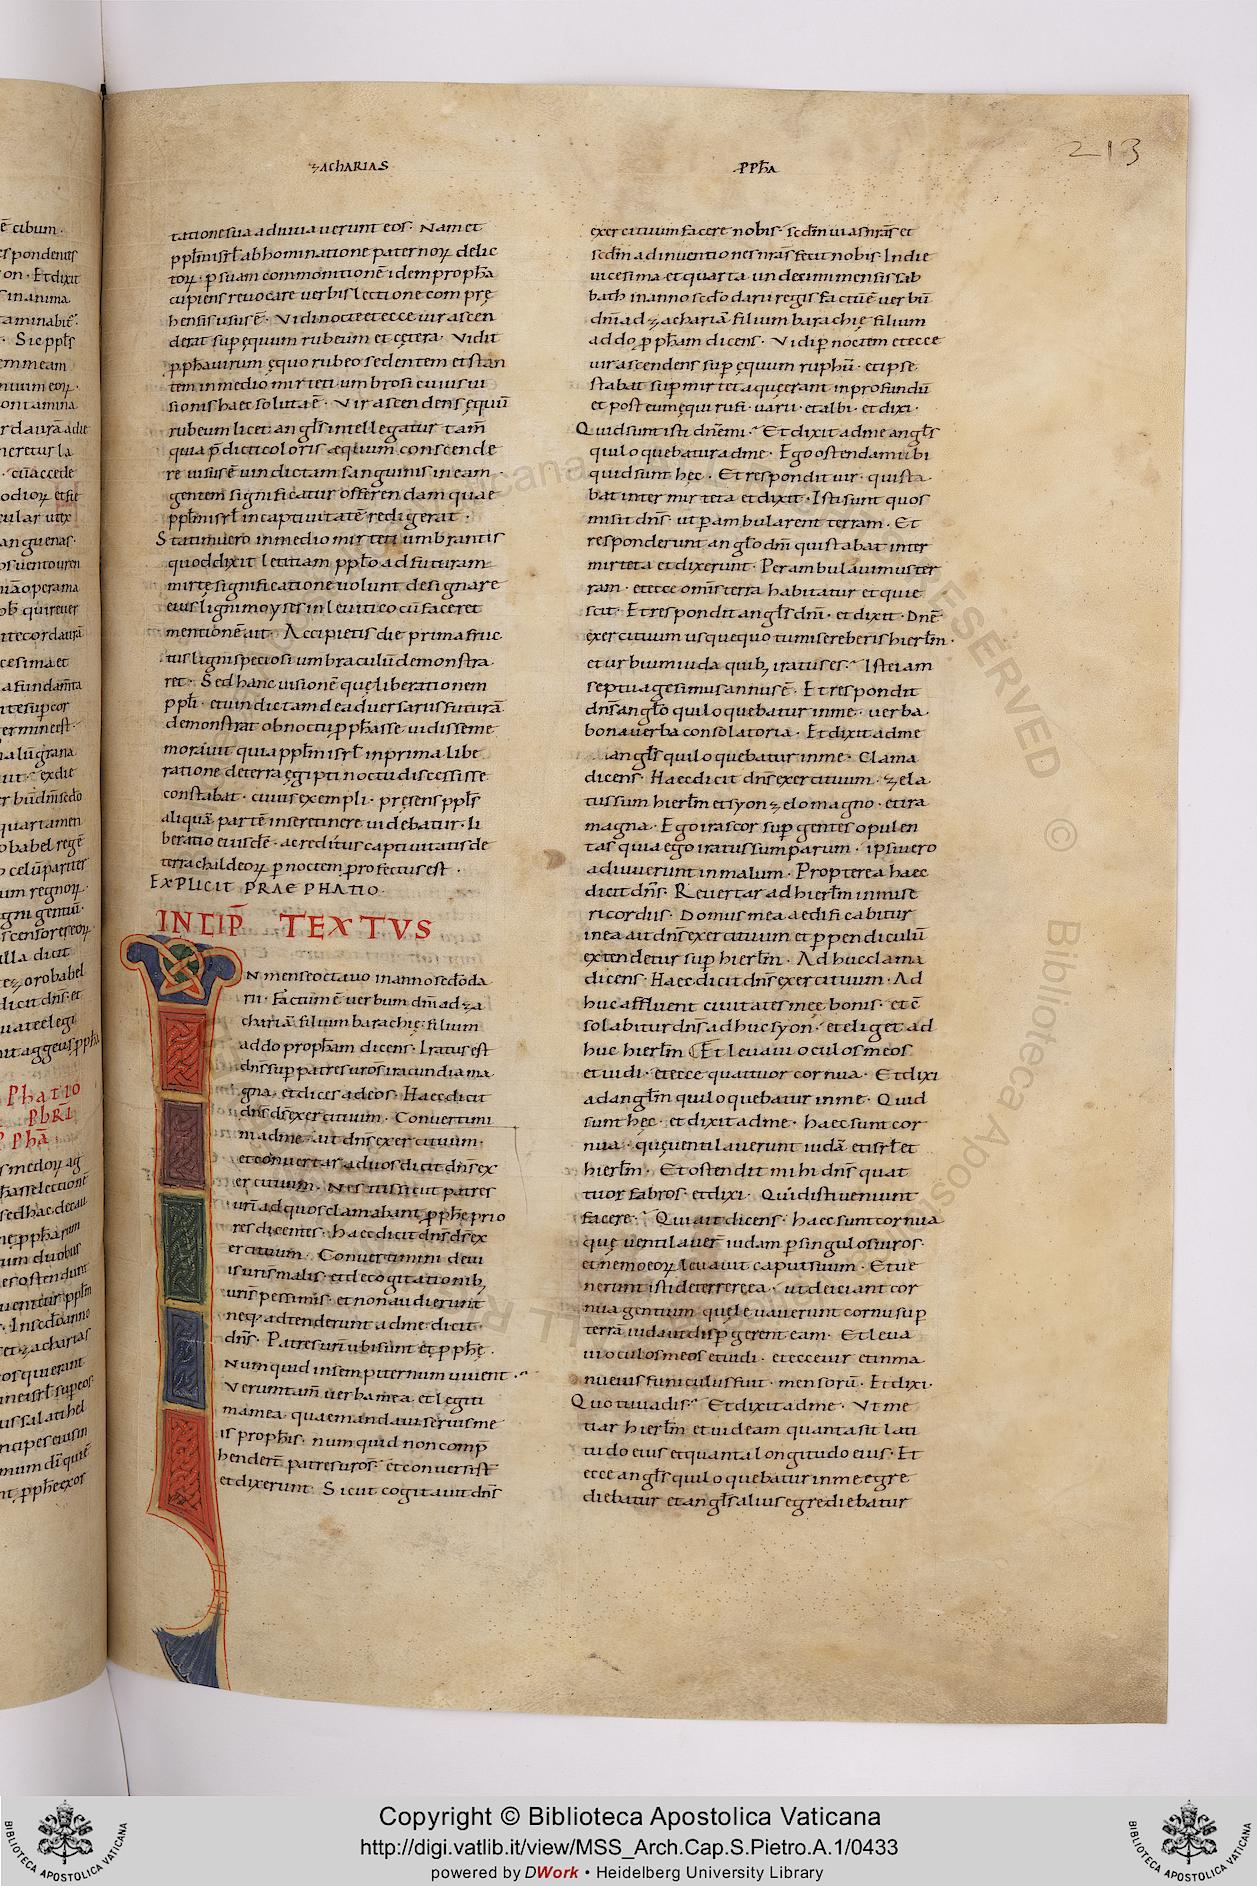 zACHARIAS
PPħA
213
tationes sua adiuua uerunt eos· Nam et
pplm̄ isrł abhominatione paternoꝝ delic
toꝝ· ꝑ suam commonitionē idem propħa
cupiens reuocare uerbis lectione com prę
hensis usus ē· Vidi nocte et ecce uir ascen
derat sup̄ ęquum rubeum et cętera· Vidit
ꝓpħa uirum ęquo rubeo sedentem et stan
tem in medio mirteti umbrosi cuius ui
sionis haec soluta ē· Vir ascendens ęquū
rubeum licet angłs intellegatur tam̄
quia p̄dicti coloris aequum conscende
re uisus ē uindictam sanguinis in eam·
gentem significatur offerendam quae
pplm̄ isrł in captiuitatē redigerat·
Statim uero in medio mirteti umbrantis
quod dixit letitiam ppło ad futuram
mirtę significatione uolunt designare
eius ligni moyses in leuitico cū faceret
mentionē ait· Accipietis die prima fruc
tus ligni speciosi umbraculū demonstra
ret· Sed hanc uisionē quę liberationem
ppłi· et uindictam de aduersariis futurā
demonstrat ob noctu ꝓpħasse uidisse me
morauit quia pplm̄ isrł in prima libe
ratione de terra ęgipti noctu discessisse
constabat· cuius exempli· pręsens ppłs
aliquā partē in se retinere uidebatur· li
beratio eiusdē· ac reditus captiuitatis de
terra chaldeoꝝ ꝑ noctem profectus est·
EXPLICIT PRAEPHATIO·
INCIP̄ TEXTVS
IN mense octauo in anno sedo da
rii· factum ē uerbum dn̄i ad za
chariā filium barachię· filium
addo propħam dicens· Iratus est
dn̄s sup̄ patres uros iracundia ma
gna· et dices ad eos· Haec dicit
dn̄s ds̄ exercituum· Conuertimi
ni ad me· ait dn̄s exercituum·
et conuertar ad uos dicit dn̄s ex
ercituum· Ne sitis sicut patres
uri ad quos clamabant ꝓpħę prio
res dicentes· haec dicit dn̄s ds̄ ex
ercituum· Conuertimini de ui
is uris malis· et de cogitationibꝫ
uris pessimis· et non audierunt
neqꝫ adtenderunt ad me· dicit·
dn̄s· Patres uri ubi sunt et ꝓpħę·
Numquid in sempiternum uiuent·
Veruntam̄ uerba mea· et legiti
ma mea· quae mandaui seruis me
is propħis· numquid non comp̄
hendert̄ patres uros· et conuersi st̄
et dixerunt· Sicut cogitauit dn̄s
exercituum facere nobis· sedm̄ uias nrās et
sedm̄ adinuentiones nrās fecit nobis· In die
uicesima et quarta· undecimi mensis sab
bath in anno sedo darii regis· factum ē uerbū
dn̄i ad zachariā filium barachię· filium
addo, ꝓpħam dicens· Vidi ꝑ noctem et ecce
uir ascendens sup̄ ęquum ruphū· et ipse
stabat sup̄ mirteta quę erant in profundū
et post eum ęqui rufi· uarii· et albi· et dixi·
Quid sunt isti dn̄e mi· Et dixit ad me angłs
qui loquebatur ad me· Ego ostendam tibi
quid sunt hęc· Et respondit uir· qui sta
bat inter mirteta et dixit· Isti sunt quos
misit dn̄s· ut perambularent terram· Et
responderunt angło dn̄i qui stabat inter
mirteta et dixerunt· Perambulauimus ter
ram· et ecce omis terra habitatur et quie
scit· Et respondit angłs dn̄i· et dixit· Dn̄ē
exercituum usquequo tu misereberis hierlm̄·
et urbium iuda quibꝫ iratus es· Iste iam
septuagesimus annus ē· Et respondit
dn̄s angło qui loquebatur in me· uerba
bona uerba consolatoria· Et dixit ad me
angłs qui loquebatur in me· Clama
dicens· Haec dicit dn̄s exercituum· zela
tus sum hierlm̄ et syon zelo magno· et ira
magna· Ego irascor sup̄ gentes opulen
tas quia ego iratus sum parum· ipsi uero
adiuuerunt in malum· Propterea haec
dicit dn̄s· Reuertar ad hierlm̄ in mise
ricordiis· Domus mea aedificabitur
in ea ait dn̄s exercituum et ꝑpendiculū
extendetur sup̄ hierlm̄· Adhuc clama
dicens· Haec dicit dn̄s exercituum· Ad
huc affluent ciuitates meę bonis· et ē
solabitur dn̄s adhuc syon· et eliget ad
huc hierlm̄ Et leuaui oculos meos
et uidi· et ecce quattuor cornua· Et dixi
ad anglm̄ qui loquebatur in me· Quid
sunt hęc· et dixit ad me· haec sunt cor
nua· quę uentilauerunt iudā· et isrł et
hierlm̄· Et ostendit mihi dn̄s quat
tuor fabros· et dixi· Quid isti ueniunt
facere· Qui ait dicens· haec sunt cornua
quę uentilauer̄ iudam ꝑ singulos uiros·
et nemo eoꝝ leuauit caput suum· Et ue
nerunt isti deterrere ea· ut deiciant cor
nua gentium quę leuauerunt cornu sup̄
terrā iuda ut disp̄gerent eam· Et leua
ui oculos meos et uidi· et ecce uir et in ma
nu eius funiculus fuit· mensorū· Et dixi·
Quo tu uadis· Et dixit ad me· Vt me
tiar hierlm̄ et uideam quanta sit lati
tudo eius et quanta longitudo eius· Et
ecce angłs qui loquebatur in me egre
diebatur et angłs alius egrediebatur
Copyright © Biblioteca Apostolica Vaticana
http://digi.vatlib.it/view/MSS_Arch.Cap.S.Pietro.A.1/0433
powered by DWork • Heidelberg University Library
BIBLIOTECA APOSTOLICA VATICANA
BIBLIOTECA APOSTOLICA VATICANA